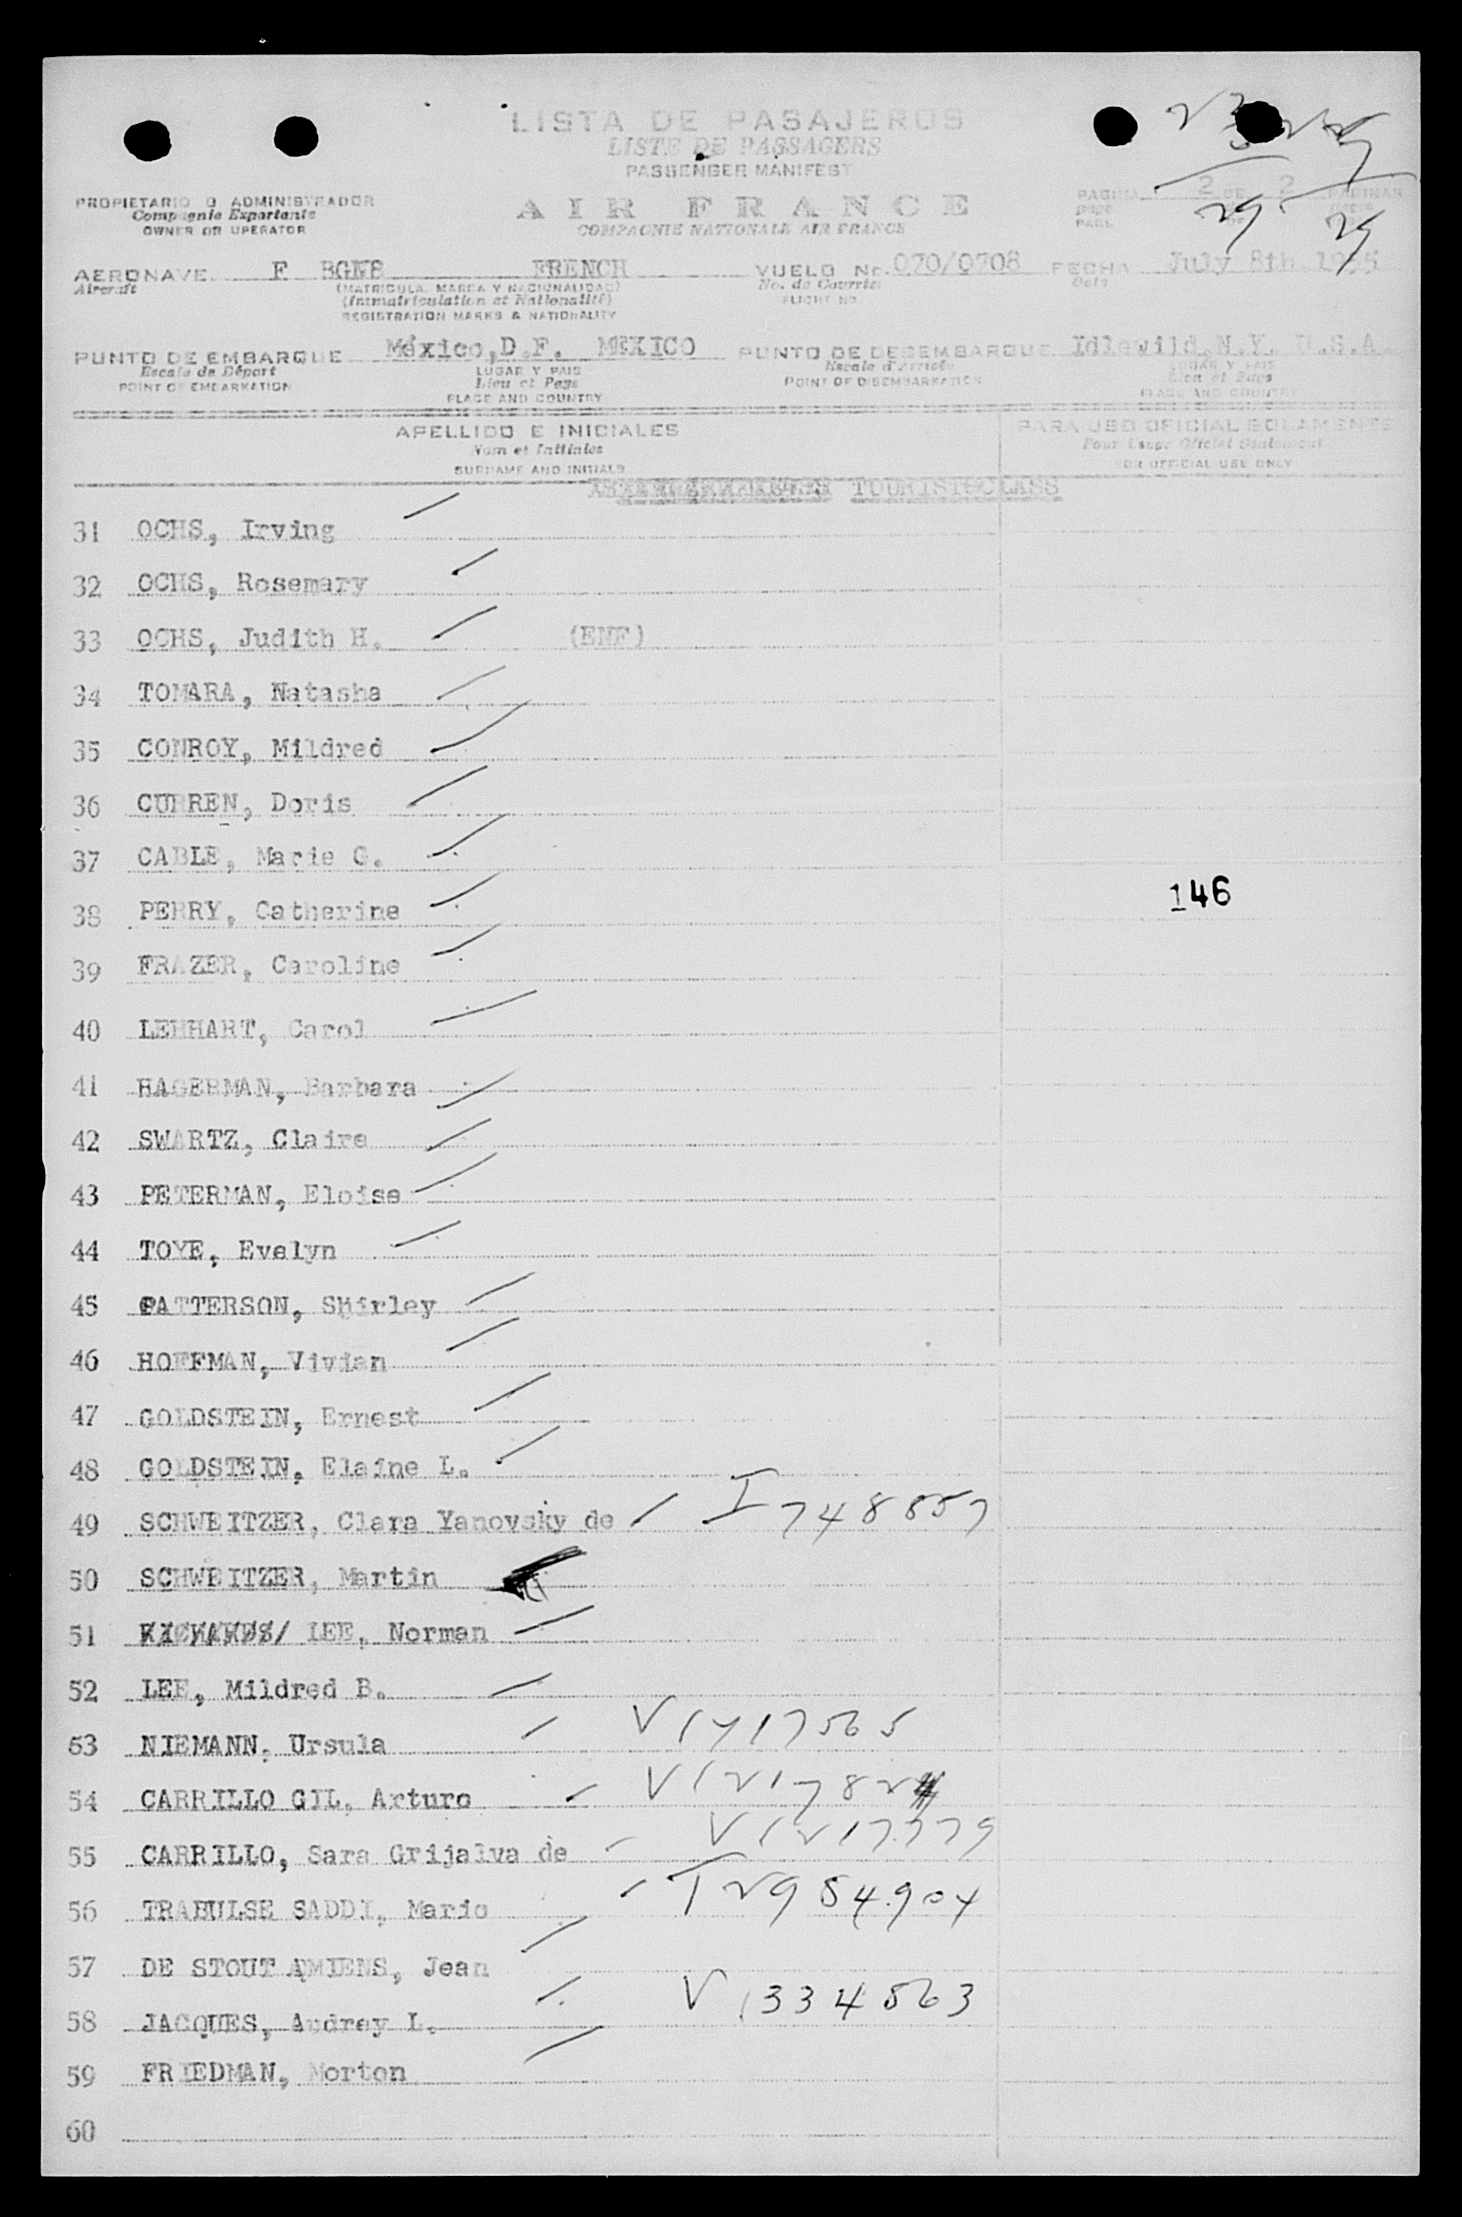 LISTA DE PASAJEROS
LISTE DE PASSAGERS
PASSENGER MANIFEST
PROPIETARIO O ADMINISTRADOR
Compagnie Exportante
OWNER OR OPERATOR
AIR FRANCE
COMPAGNIE NATIONALE AIR FRANCE
PAGINA 2 DE 2 PAGINAS
page
PAGE
29
29
AERONAVE F BGNB FRENCH VUELO No. 070/0708 FECHA July 8th 1955
Aircraft (MATRICULA, MARCA Y NACIONALIDAD) No. de Courrier Date
(Immatriculation et Nationalité) FLIGHT No
REGISTRATION MARKS & NATIONALITY
PUNTO DE EMBARQUE México,D.F. MEXICO PUNTO DE DESEMBARQUE Idlewild,N.Y. U.S.A.
Escale de Départ LUGAR Y PAIS Escale d'arrivée LUGAR Y PAIS
POINT OF EMBARKATION Lieu et Pays POINT OF DISEMBARKATION Lieu et Pays
PLACE AND COUNTRY PLACE AND COUNTRY
APELLIDO E INICIALES PARA USO OFICIAL SOLAMENTE
Nom et Initiales Pour Usage Officiel Seulement
SURNAME AND INITIALS FOR OFFICIAL USE ONLY
TOURIST CLASS
31 OCHS, Irving
32 OCHS, Rosemary
33 OCHS, Judith H. (ENF)
34 TOMARA, Natasha
35 CONROY, Mildred
36 CURREN, Doris
37 CABLE, Marie G.
146
38 PERRY, Catherine
39 FRAZER, Caroline
40 LEHHART, Carol
41 HAGERMAN, Barbara
42 SWARTZ, Claire
43 PETERMAN, Eloise
44 TOYE, Evelyn
45 PATTERSON, Shirley
46 HOFFMAN, Vivian
47 GOLDSTEIN, Ernest
48 GOLDSTEIN, Elaine L.
49 SCHWEITZER, Clara Yanovsky de I 748857
50 SCHWEITZER, Martin
51 LEE, Norman
52 LEE, Mildred B.
53 NIEMANN, Ursula V1717565
54 CARRILLO GIL, Arturo
55 CARRILLO, Sara Grijalva de V1217779
56 TRABULSE SADDI, Mario I 2984904
57 DE STOUT AMIENS, Jean
58 JACQUES, Audrey L. V 1334563
59 FRIEDMAN, Morton
60